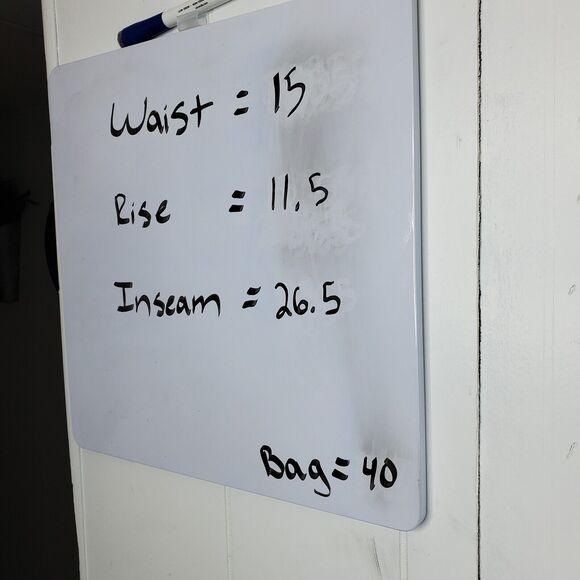 Waist = 15
Rise = 11.5
Inseam = 26.5
Bag = 40